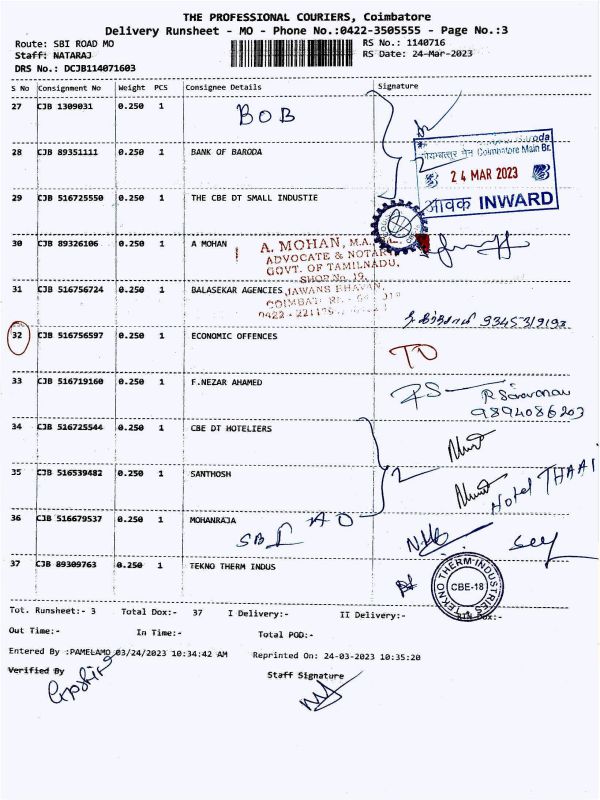 THE PROFESSIONAL COURIERS, Coimbatore
Delivery Runsheet - MO - Phone No.:0422-3505555 - Page No.:3
Route: SBI ROAD MO
RS No.: 1140716
Staff: NATARAJ
RS Date: 24-Mar-2023
DRS No.: DCJB114071603
S No Consignment No Weight PCS Consignee Details Signature
27 CJB 1309031 0.250 1 BOB
28 CJB 89351111 0.250 1 BANK OF BARODA
Coimbatore Main Br.
24 MAR 2023
आवक INWARD
29 CJB 516725550 0.250 1 THE CBE DT SMALL INDUSTIE
30 CJB 89326106 0.250 1 A MOHAN
A. MOHAN, M.A.
ADVOCATE & NOTARY
GOVT. OF TAMILNADU,
SHOP No. 19,
31 CJB 516756724 0.250 1 BALASEKAR AGENCIES
JAWANS BHAVAN,
32 CJB 516756597 0.250 1 ECONOMIC OFFENCES
33 CJB 516719160 0.250 1 F.NEZAR AHAMED
RS R Saravanan
9894086203
34 CJB 516725544 0.250 1 CBE DT HOTELIERS
2
35 CJB 516539482 0.250 1 SANTHOSH
Hotel THAAI
36 CJB 516679537 0.250 1 MOHANRAJA
SBI AO
37 CJB 89309763 0.250 1 TEKNO THERM INDUS
TEKNO THERM-INDUSTRIES
CBE-18
Tot. Runsheet:- 3 Total Dox:- 37 I Delivery:- II Delivery:-
Out Time:- In Time:- Total POD:-
Entered By :PAMELAMO 03/24/2023 10:34:42 AM Reprinted On: 24-03-2023 10:35:20
Verified By
Staff Signature